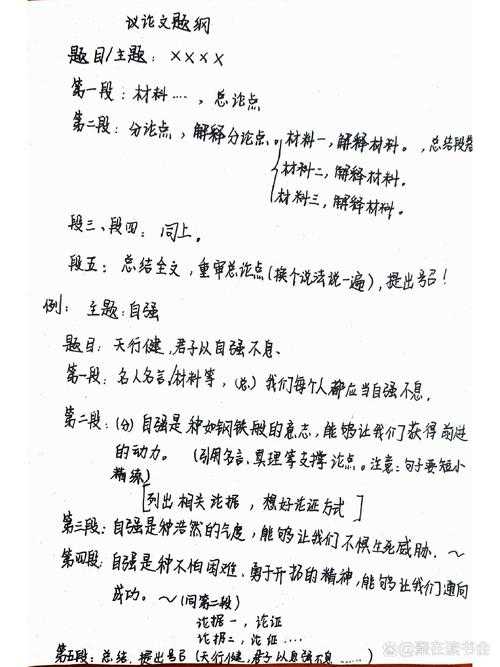 议论文题纲
题目/主题：××××
第一段：材料……，总论点
第二段：分论点，解释分论点。材料一，解释材料。，总结段落
材料二，解释材料。
材料三，解释材料。
段三、段四：同上。
段五：总结全文，重审总论点(换个说法说一遍)，提出号召！
例：主题：自强
题目：天行健，君子以自强不息、
第一段：名人名言/材料等，(总)我们每个人都应当自强不息．
第二段：(分)自强是种如钢铁般的意志，能够让我们获得前进
的动力。(引用名言、真理等支撑论点。注意：句子要短小
精练)
[列出相关论据，想好论证方式]
第三段：自强是种浩然的气度，能够让我们不惧生死威胁．～
第四段：自强是种不怕困难、勇于开拓的精神，能够让我们通向
成功。～(同第二段)
论据一，论证
论据二，论证....
第五段：总结、提出号召(天行健，君子以自强不息......)